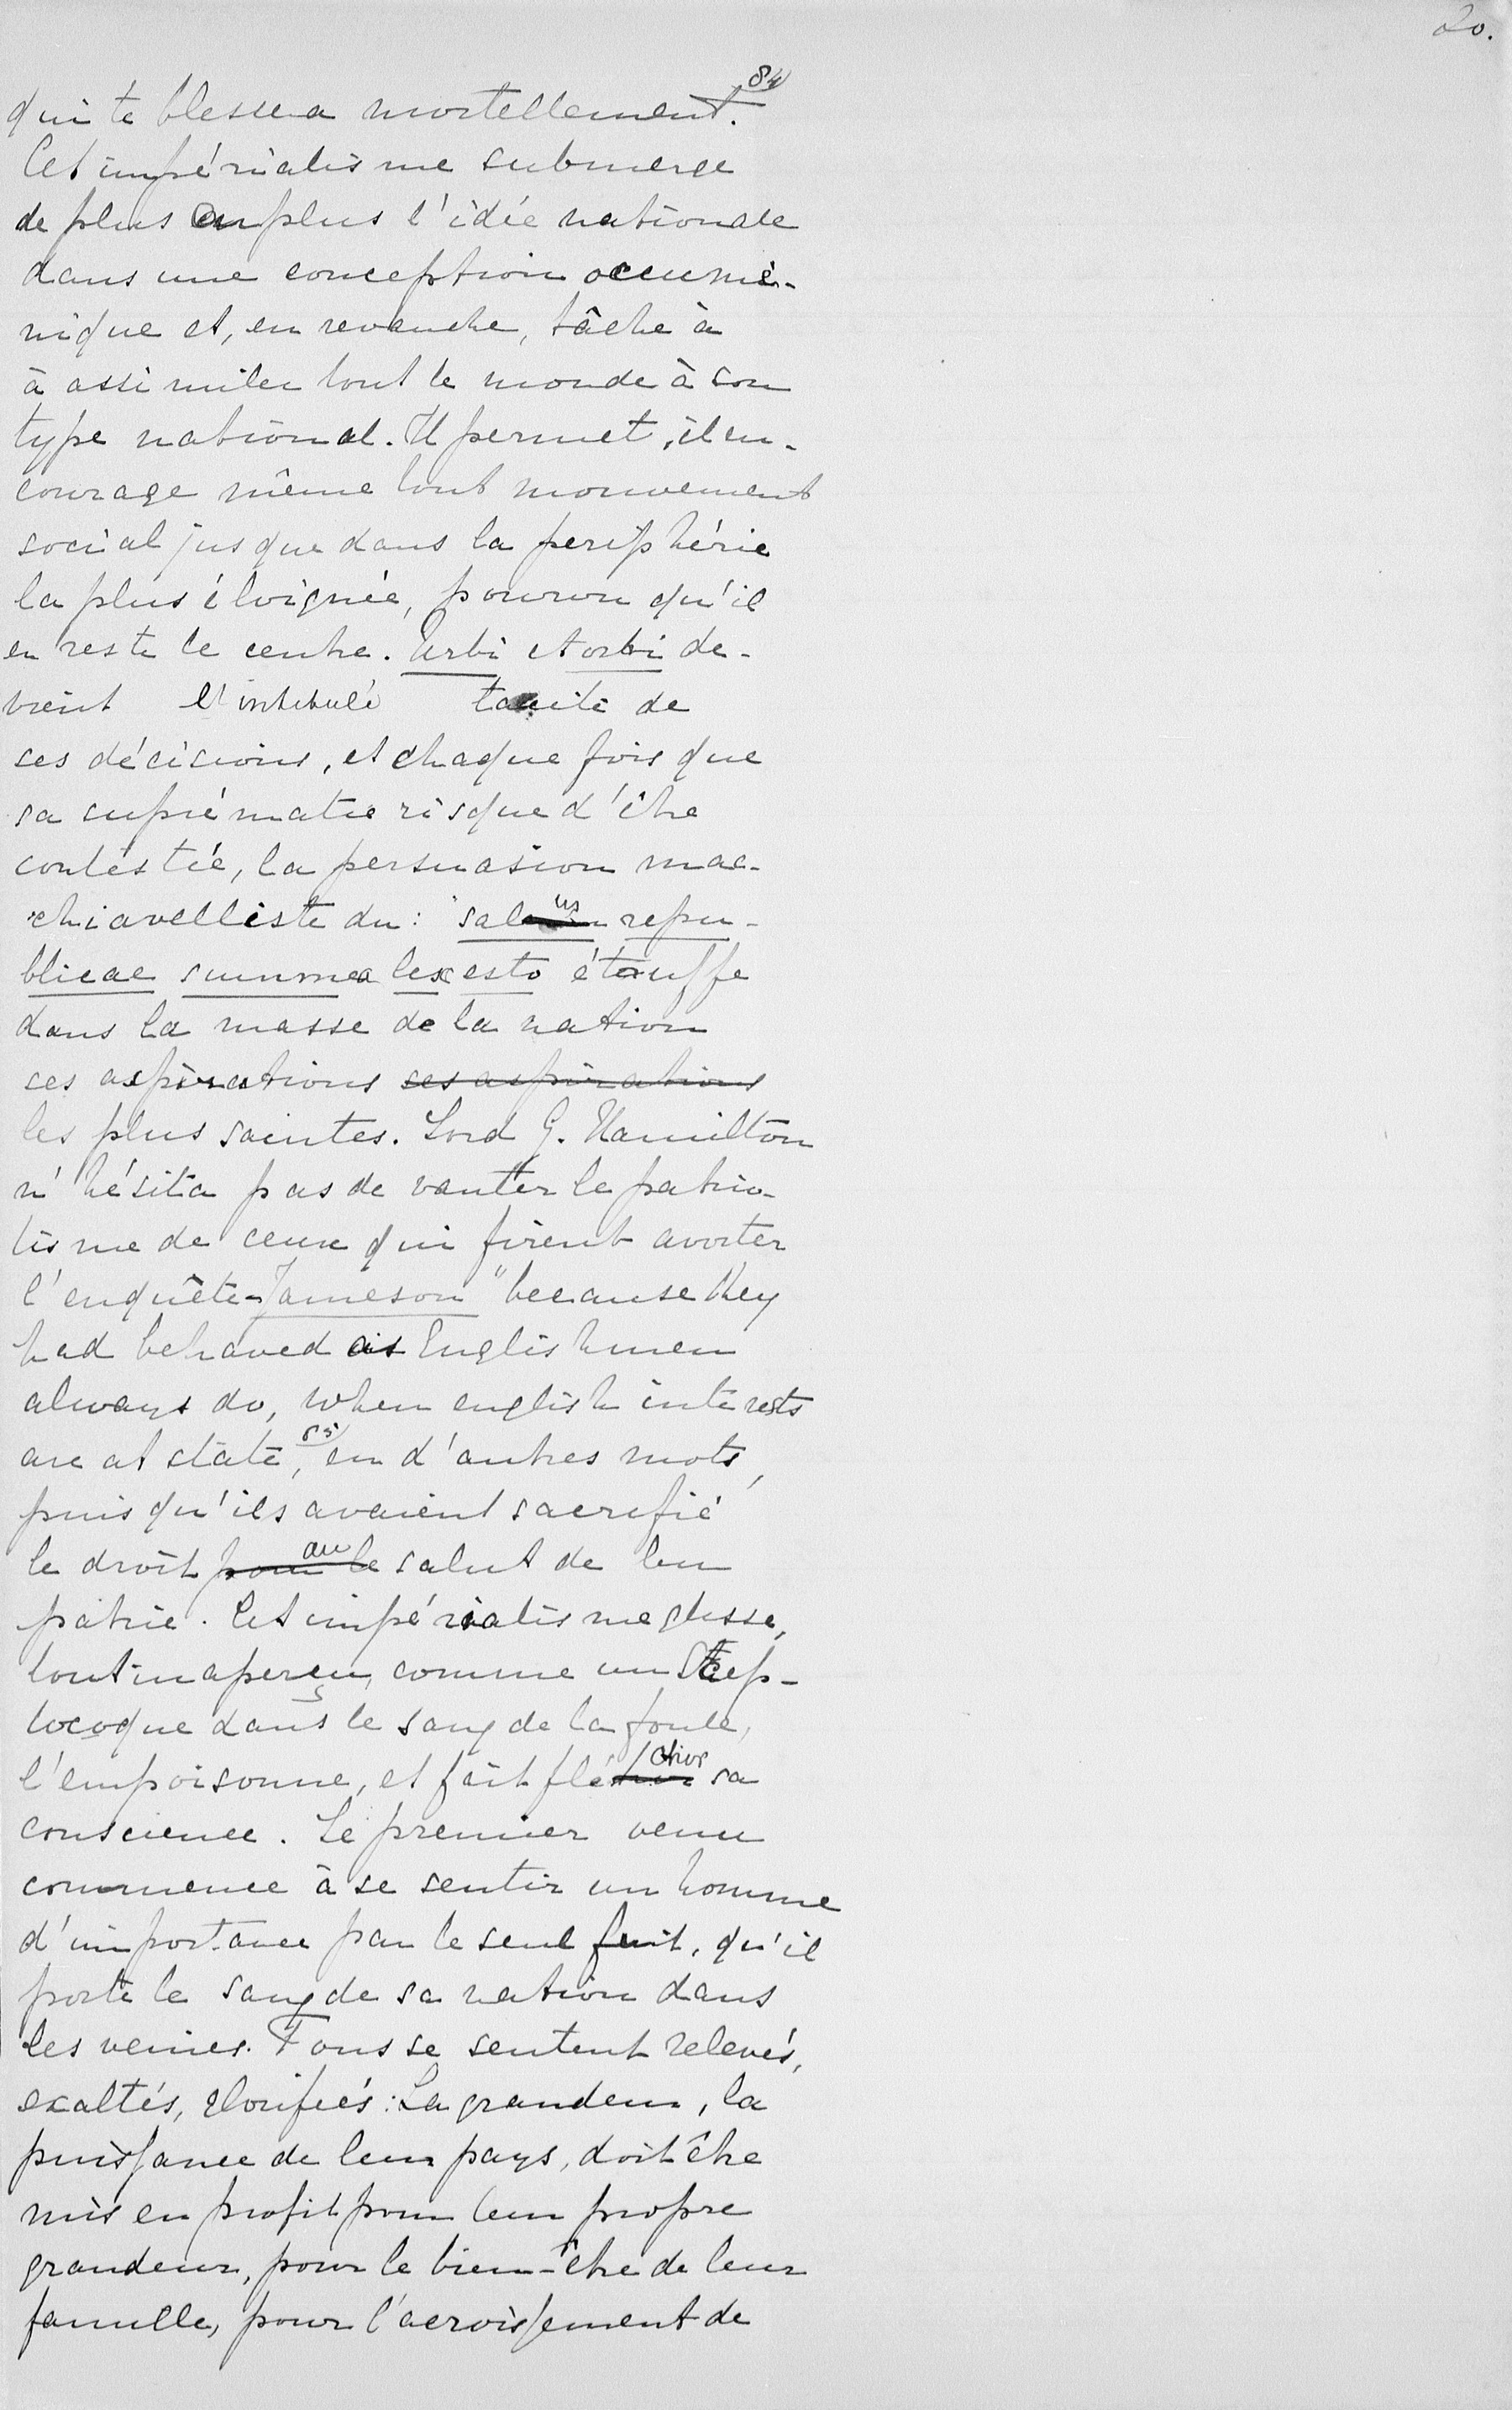 20.
qui te blessera mortellement. 84)
Cet impérialisme submerge
de plus en plus l'idée nationale
dans une conception oecumé-
nique et, en revanche, tâche à
à assimiler tout le monde à son
type national. Il permet, il en-
courage même tout mouvement
social jusque dans la periphérie
la plus éloignée, pourvu qu'il
en reste le centre. Urbi et orbi de-
vient l'intitulé tacite de
ces décisions, et chaque fois que
sa suprématie risque d'être
contestée, la persuasion mac-
chiavelliste du: "salus repu-
blicae summa lex esto étouffe
dans la masse de la nation
ses aspirations ses aspirations
les plus saintes. Lord G. Hamilton
n'hésita pas de vanter le patrio-
tisme de ceux qui firent avorter
l'enquête-Jameson "because they
had behaved as Englishmen
always do, when english interests
are at state, 85) en d'autres mots,
puisqu'ils avaient sacrifié
le droit pour le au salut de leur
patrie. Cet impérialisme glisse,
tout inaperçu, comme un Strep-
tocoque dans le sang de la foule,
l'empoisonne, et fait fléchir sa
conscience. Le premier venu
commence à se sentir un homme
d'importance par le seul fait, qu'il
porte le sang de sa nation dans
les veines. Tous se sentent relevés,
exaltés, glorifiés: La grandeur, la
puissance de leur pays, doit être
mis en profit pour leur propre
grandeur, pour le bien-être de leur
famille, pour l'acroissement de